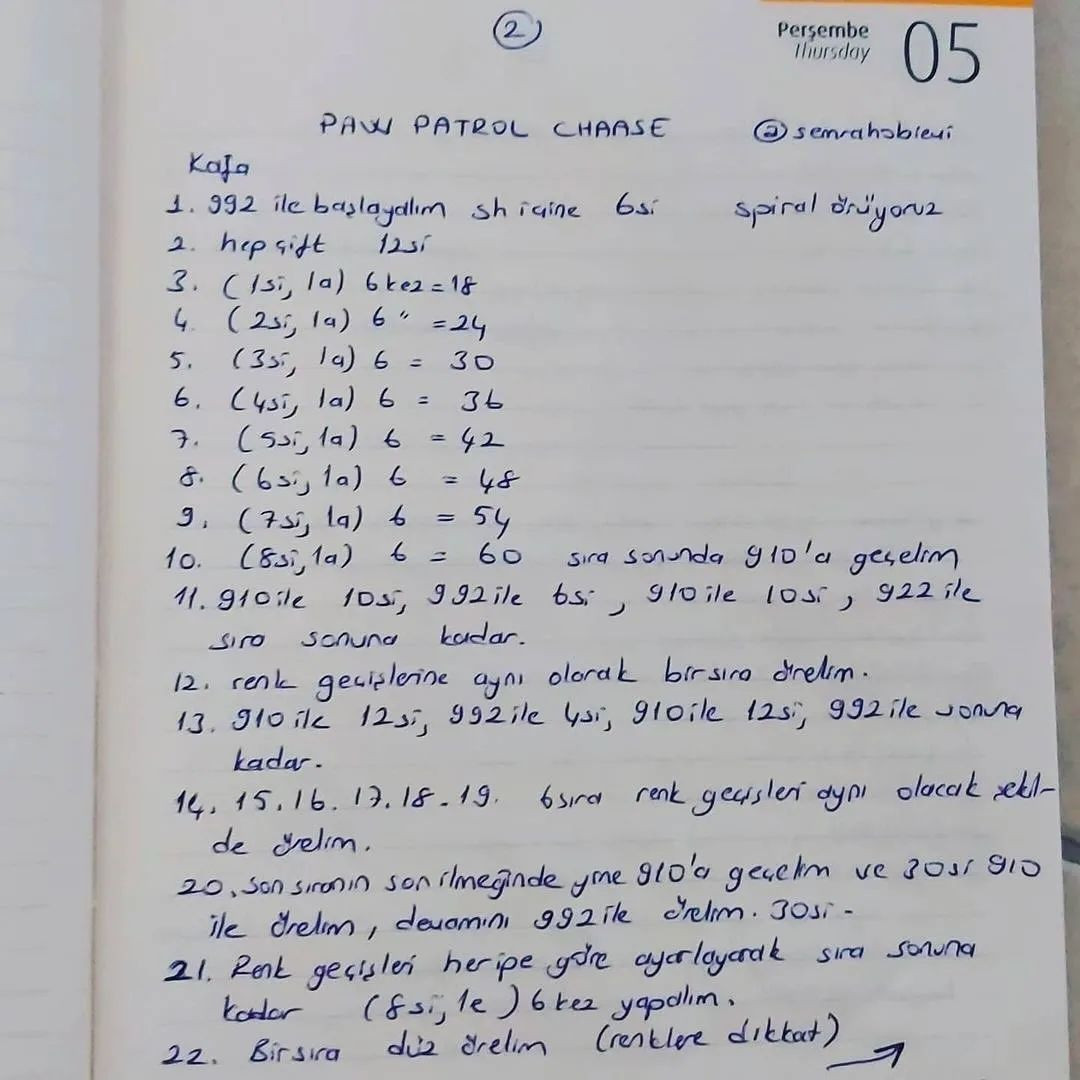 2
Perşembe
Thursday
05
PAW PATROL CHAASE @semrahobievi
Kafa
1. 992 ile başlayalım sh içine 6si spiral örüyoruz
2. hep çift 12si
3. (1si, 1a) 6 kez = 18
4. (2si, 1a) 6 " = 24
5. (3si, 1a) 6 = 30
6. (4si, 1a) 6 = 36
7. (5si, 1a) 6 = 42
8. (6si, 1a) 6 = 48
9. (7si, 1a) 6 = 54
10. (8si, 1a) 6 = 60 sıra sonunda 910'a geçelim
11. 910 ile 10si, 992 ile 6si, 910 ile 10si, 922 ile
sıra sonuna kadar.
12. renk geçişlerine aynı olarak bir sıra örelim.
13. 910 ile 12si, 992 ile 4si, 910 ile 12si, 992 ile sonuna
kadar.
14. 15. 16. 17. 18. 19. 6 sıra renk geçişleri aynı olacak şekil-
de örelim.
20. son sıranın son ilmeğinde yine 910'a geçelim ve 30si 910
ile örelim, devamını 992 ile örelim. 30si -
21. Renk geçişleri heripe göre ayarlayarak sıra sonuna
kadar (8si, 1e) 6 kez yapalım.
22. Bir sıra düz örelim (renklere dikkat) →